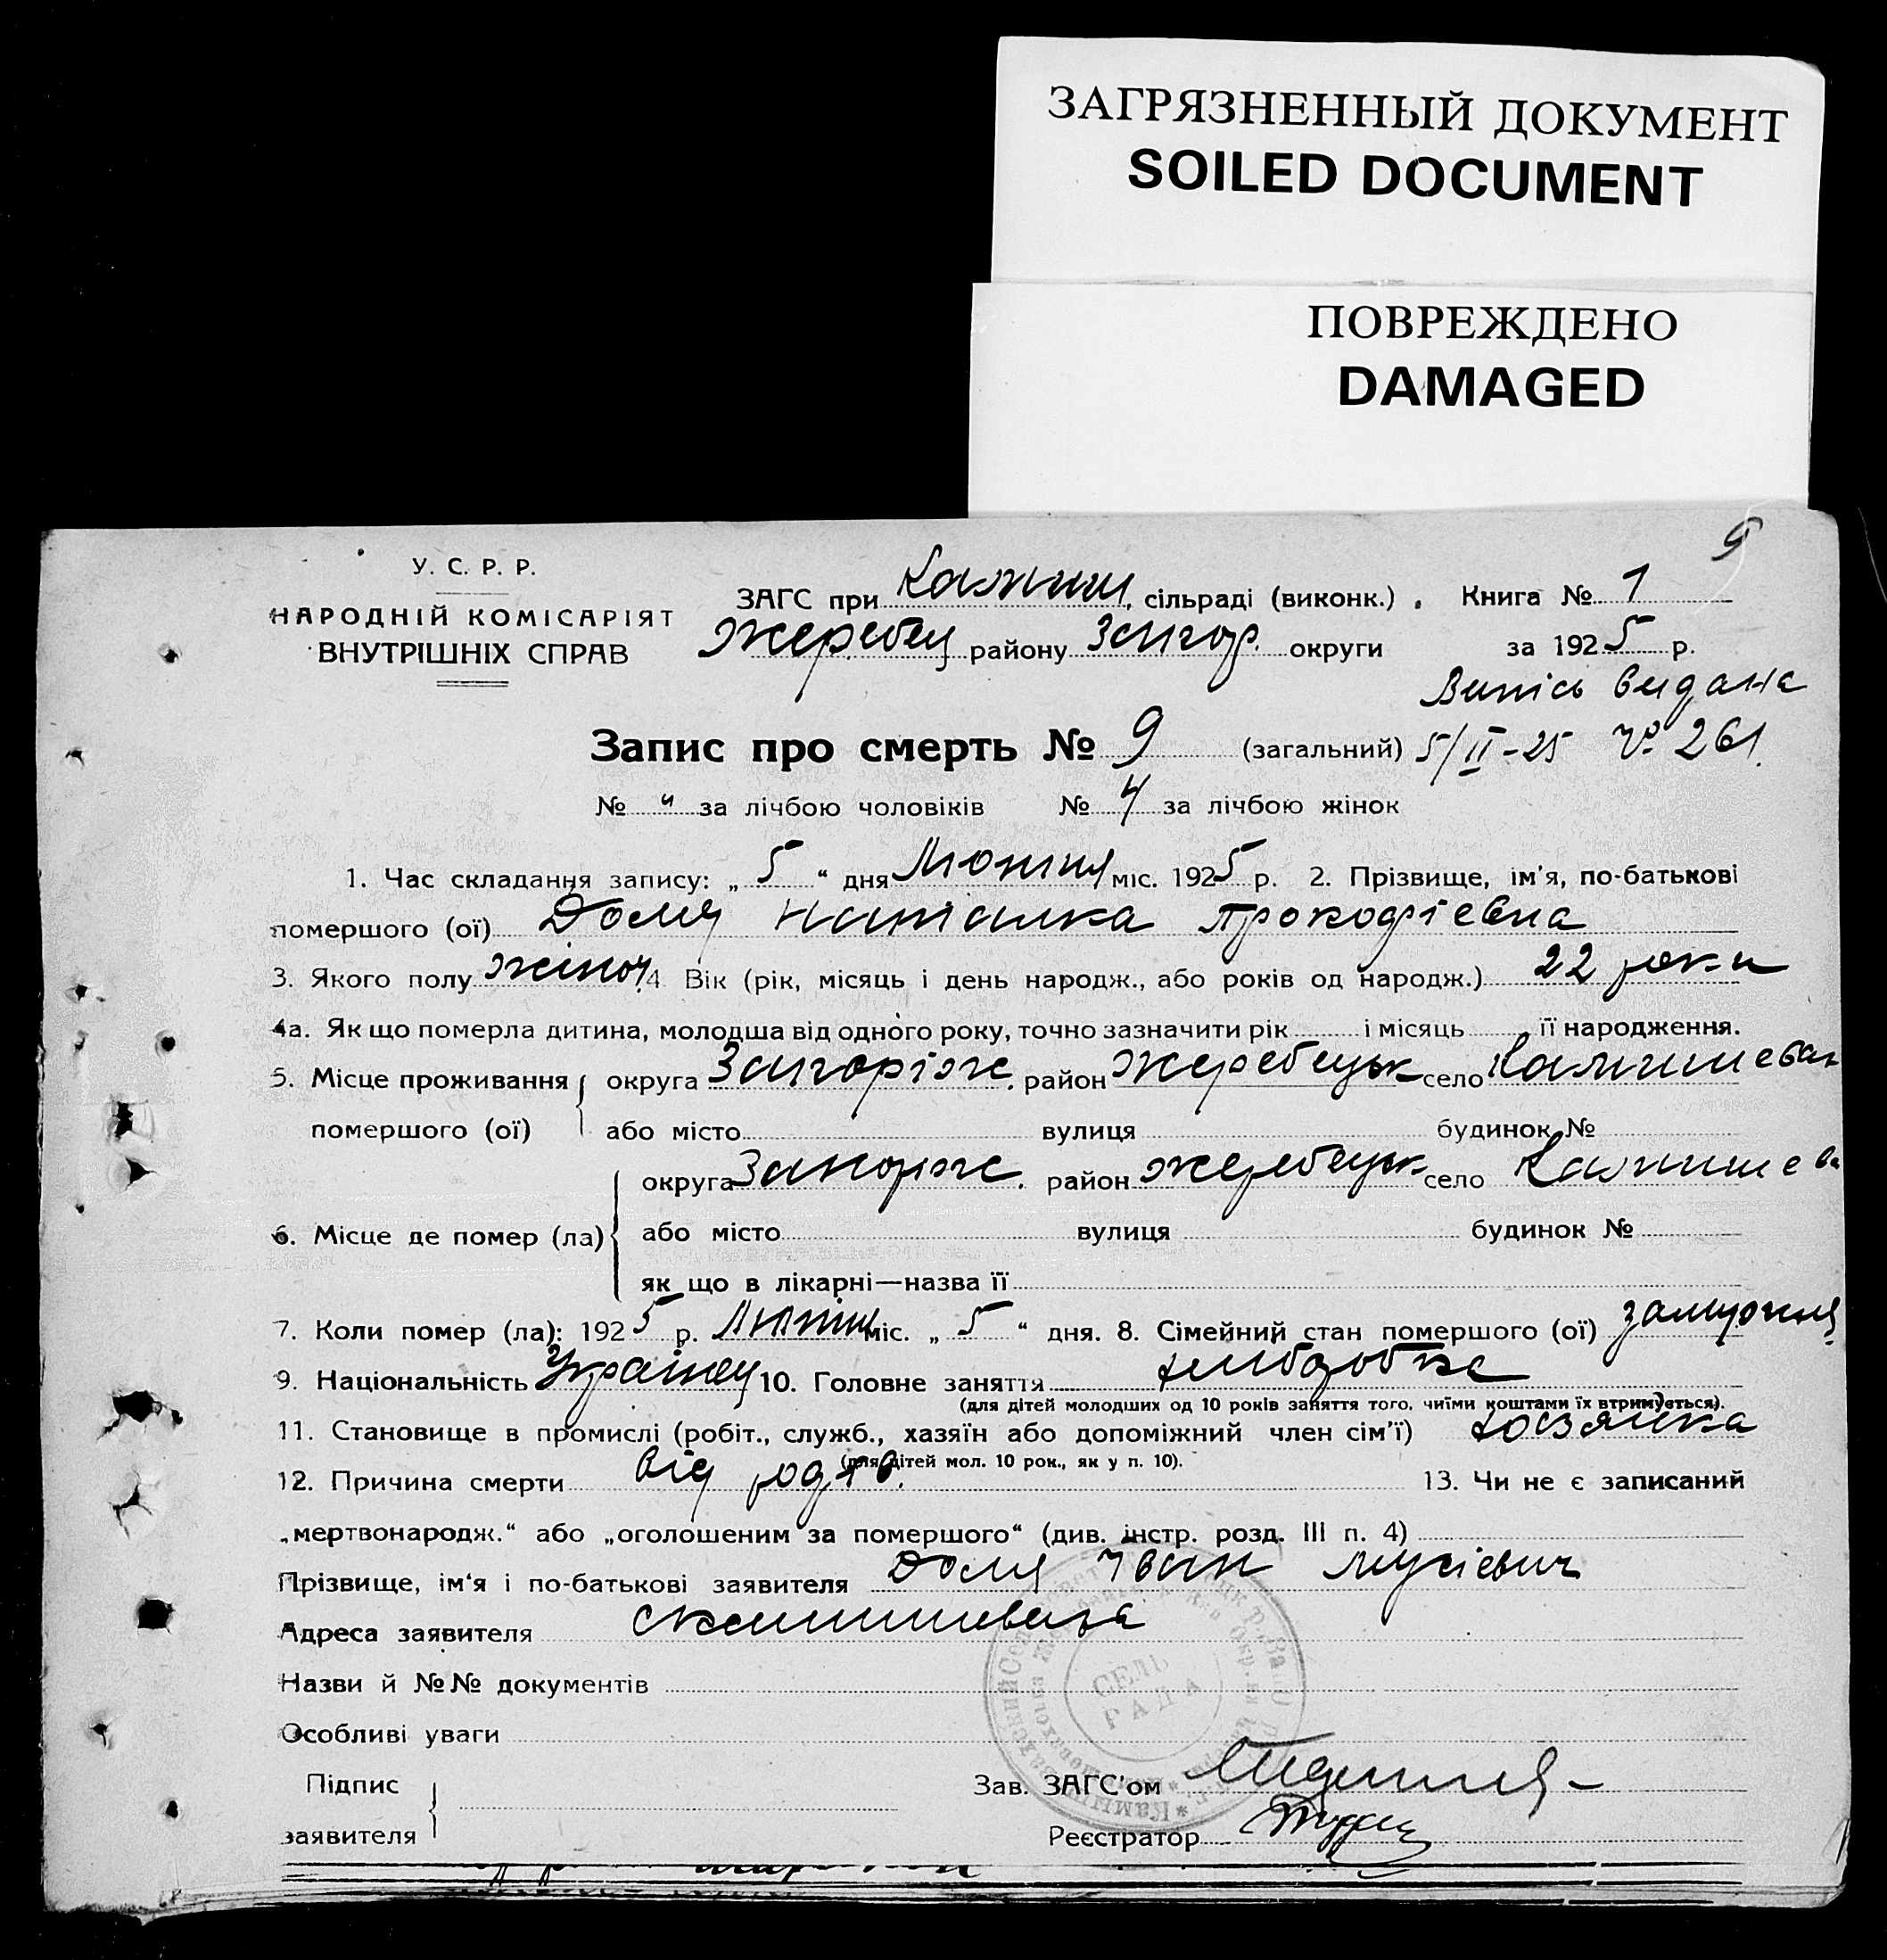 ЗАГРЯЗНЕННЫЙ ДОКУМЕНТ
SOILED DOCUMENT
ПОВРЕЖДЕНО
DAMAGED
9
У. С. Р. Р.
НАРОДНІЙ КОМІСАРІЯТ
ВНУТРІШНІХ СПРАВ
ЗАГС при Камиш. сільраді (виконк.) . Книга № 1
Жеребец району Запор. округи за 1925 р.
Випісь видана
Запис про смерть № 9 (загальний) 5/II-25 № 261.
№ " за лічбою чоловіків № 4 за лічбою жінок
1. Час складання запису: „ 5 “ дня Лютня міс. 1925 р. 2. Прізвище, ім'я, по-батькові
помершого (ої) Доля Наталка Прокофіевна
3. Якого полу жіноч. 4 Вік (рік, місяць і день народж., або років од народж.) 22 роки
4а. Як що померла дитина, молодша від одного року, точно зазначити рік і місяць її народження.
5. Місце проживання округа Запоріж. район Жеребецьк село Камишеваха
помершого (ої) або місто вулиця будинок №
округа Запоріж. район Жеребецьк село Камишева
6. Місце де помер (ла) або місто вулиця будинок №
як що в лікарні—назва її
7. Коли помер (ла): 1925 р. Лютня міс. „ 5 “ дня. 8. Сімейний стан помершого (ої) замужня
9. Національність Українец 10. Головне заняття хліборобка
(для дітей молодших од 10 років заняття того, чиїми коштами їх втримується).
11. Становище в промислі (робіт., служб., хазяїн або допоміжний член сім'ї) хозяйка
(для дітей мол. 10 рок., як у п. 10).
12. Причина смерти від родів. 13. Чи не є записаний
„мертвонародж.“ або „оголошеним за помершого“ (див. інстр. розд. III п. 4)
Прізвище, ім'я і по-батькові заявителя Доля Іван Мусієвич
Адреса заявителя с Камишеваха
Назви й №№ документів
Особливі уваги
СЕЛЬ
РАДА
Підпис
заявителя
Зав. ЗАГС'ом
Реєстратор